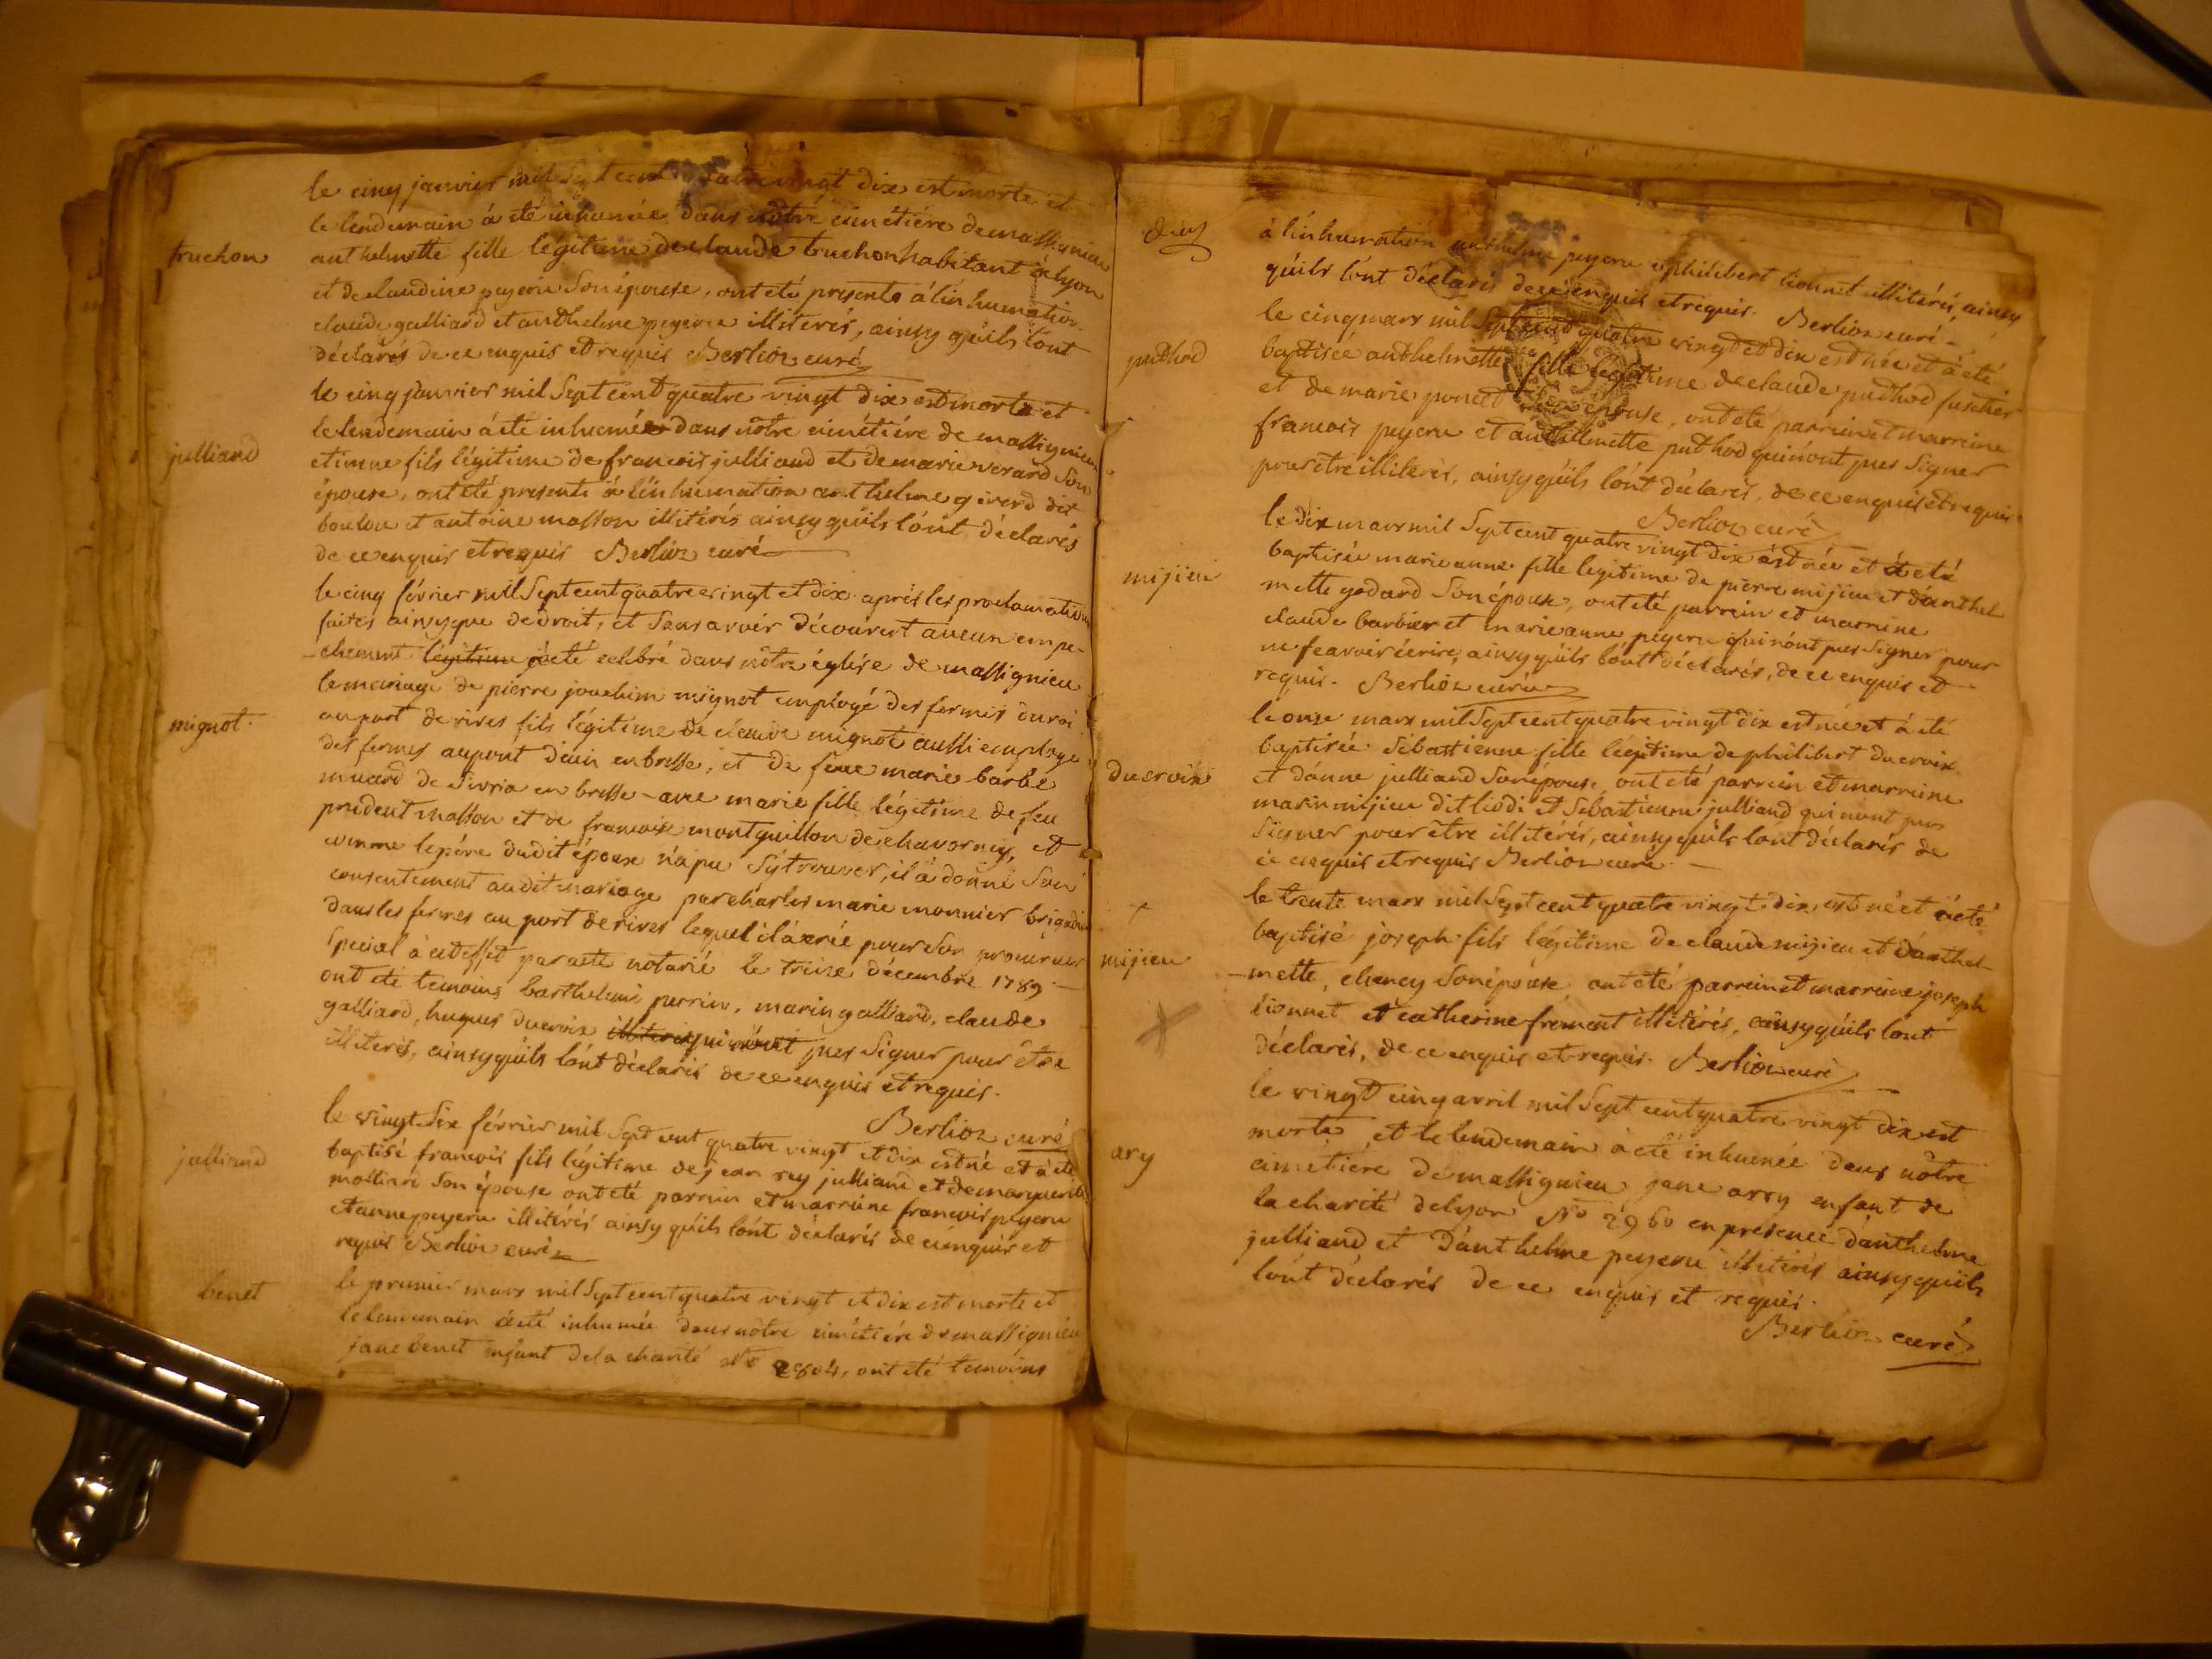 le cinq janvier mil sept cent quatre vingt dix est morte et
le lendemain à eté inhumée dans nôtre cimétiére de massignieu
truchon
anthelmette fille légitime de claude truchon habitant à lyon
et de claudine peyeru son épouse, ont eté presents à l'inhumation
claude galliard et anthelme peyeru illiterés, ainsy qúils lont
déclarés de ce enquis et requis Berlioz curé
le cinq janvier mil sept cent quatre vingt dix est morte et
le lendemain à eté inhumée dans nôtre cimétiére de massignieu
julliand
etienne fils légitime de francois julliand et de marie verard son
épouse, ont eté presents à l'inhumation anthelme girerd dit
boulou et antoine masson illitérés ainsy qúils lónt déclarés
de ce enquis et requis Berlioz curé
le cinq février mil sept cent quatre vingt et dix aprés les proclamations
faites ainsy que de droit, et sans avoir découvert aúcun empe-
-chement légitime à eté celebré dans nôtre église de massignieu
le mariage de pierre joachim mignot employé des fermes du roi
mignot
au port de rives fils légitime de claude mignot aussi employé
des fermes au pont d'ain en bresse, et de feue marie barbe
muard de sivria en bresse - avec marie fille légitime de feu
prudent masson et de francoise montguillon de chavornay, et
comme le pére dudit époux n'a pu s'ý trouver, il à donné son
consentement audit mariage par charles marie monnier brigadier
dans les fermes au port de rives lequel il à créé pour son procureur
special à cet effet par acte notarié le treize décembre 1789.
ont eté temoins barthelemi perrin, marin galliard, claude
galliard, hugues ducroix illiterés qui n'ont pas signer pour être
illiterés, ainsy qúils lónt déclarés de ce enquis et requis.
Berlioz curé
le vingt six février mil sept cent quatre vingt et dix est né et à eté
julliand
baptisé francois fils légitime de jean rey julliand et de marguerite
mollion son épouse ont eté parrain et marraine francois peyeru
et anne peyeru illitérés ainsy qúils lónt déclarés de ce enquis et
requis Berlioz curé
benet
le premier mars mil sept cent quatre vingt et dix est morte et
le lendemain à eté inhumée dans nôtre cimétiére de massignieu
jane benet enfant de la charité N° 2804, ont eté temoins
à l'inhumation anthelme peyeru et philibert lionnet illitérés, ainsy
qúils lónt déclarés de ce enquis et requis. Berlioz curé
le cinq mars mil sept cent quatre vingt et dix est née et à eté
puthod
baptisée anthelmette fille légitime de claude puthod fustier
et de marie poncet son épouse, ont eté parrain et marraine
francois peyeru et anthelmette puthod qui n'ont pas signer
pour être illiterés, ainsy qúils lónt déclarés, de ce enquis et requis
Berlioz curé
le dix mars mil sept cent quatre vingt dix est née et à eté
mijieu
baptisée marie anne fille legitime de pierre mijieu et dánthel
mette godard son épouse, ont eté parrain et marraine
claude barbier et marie anne peyeru qui n'ónt pas signer pour
ne scavoir écrire, ainsy qúils lónt déclarés, de ce enquis et
requis. Berlioz curé
le onze mars mil sept cent quatre vingt dix est née et à eté
baptisée sébastienne fille légitime de philibert ducroix
ducroix
et dánne julliand son épouse, ont eté parrain et marraine
marin mijieu dit liodi et sebastienne julliand qui n'ont pas
signer pour être illitérés, ainsy qúils lónt déclarés de
ce enquis et requis Berlioz curé
le trente mars mil sept cent quatre vingt dix est né et à eté
baptisé joseph fils légitime de claude mijieu et dánthel-
mijieu
-mette chaney son épouse ont eté parrain et marraine joseph
lionnet et catherine froment illitérés, ainsy qúils lónt
déclarés, de ce enquis et requis. Berlioz curé
le vingt cinq avril mil sept cent quatre vingt dix est
morte, et le lendemain à eté inhumée dans nôtre
ary
cimetiére de massignieu jane arry enfant de
la charité de lyon N° 2960 en presence dánthelme
julliand et dánthelme peyeru illitérés ainsy qúils
lónt déclarés de ce enquis et requis.
Berlioz curé